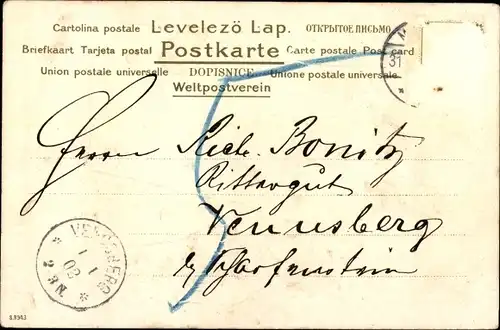 Cartolina postale Levelező Lap. ОТКРЫТОЕ ПИСЬМО
Briefkaart Tarjeta postal Postkarte Carte postale Post card
Union postale universelle DOPISNICE Unione postale universale
Weltpostverein
31
Herrn Rich. Bonitz
Rittergut
Vennsberg
b/ Scharfenstein
VENUSBERG
1 1
03
2-8 N
S 3943